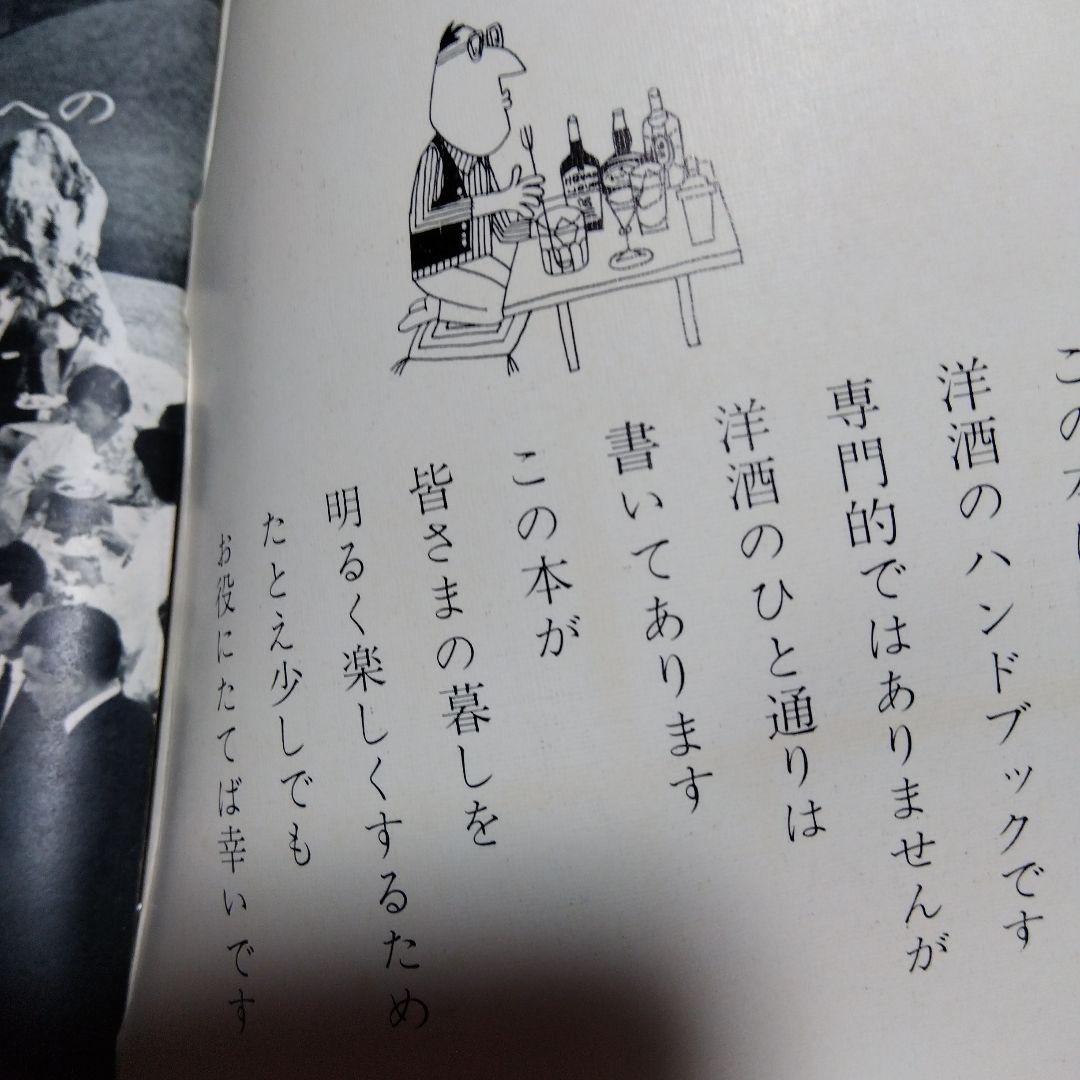 この本は
洋酒のハンドブックです
専門的ではありませんが
洋酒のひと通りは
書いてあります
この本が
皆さまの暮しを
明るく楽しくするため
たとえ少しでも
お役にたてば幸いです
への